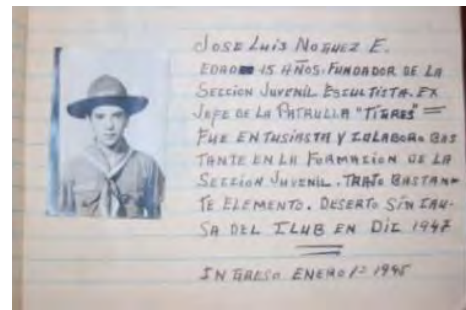 JOSE LUIS NOGUEZ E.
EDAD 15 AÑOS. FUNDADOR DE LA
SECCION JUVENIL ESCULTISTA. EX
JEFE DE LA PATRULLA "TIGRES" =
FUE ENTUSIASTA Y COLABORO BAS
TANTE EN LA FORMACION DE LA
SECCION JUVENIL. TRAJO BASTAN-
TE ELEMENTO. DESERTO SIN CAU-
SA DEL CLUB EN DIC 1947
INGRESO ENERO 1º 1945